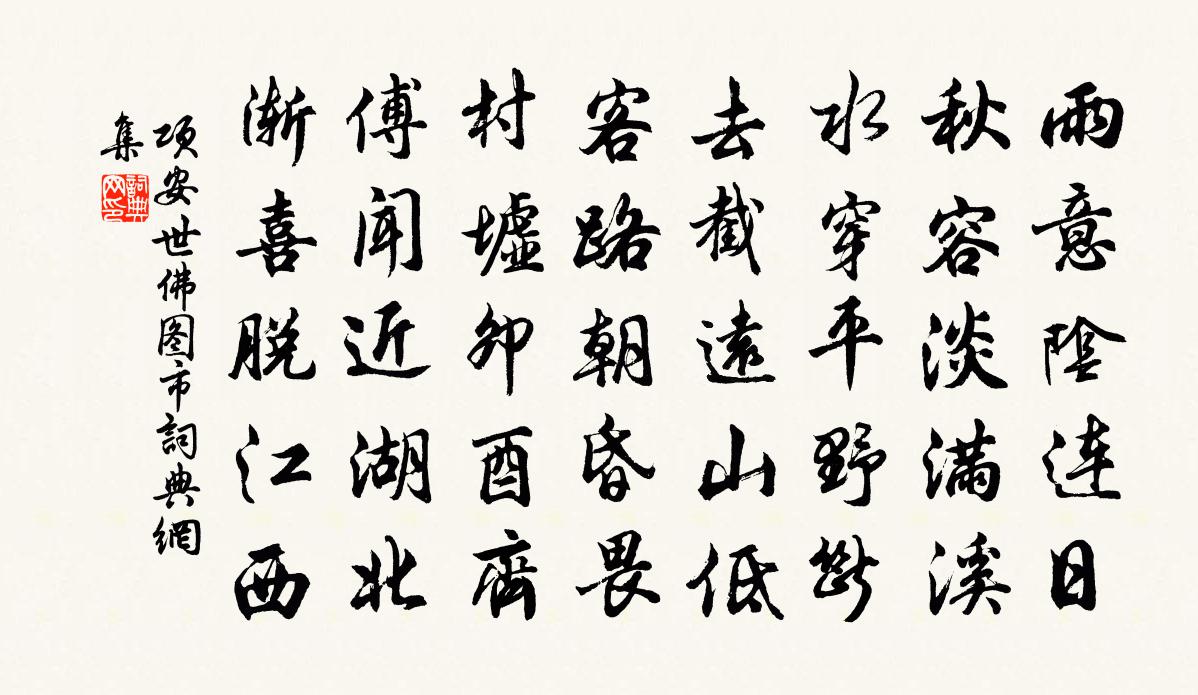 雨意陰連日
秋容淡滿溪
水穿平野斷
去截遠山低
客路朝昏畏
村墟卯酉齊
傅聞近湖北
漸喜脫江西
項安世佛图市詞典網
集
詞典
网印